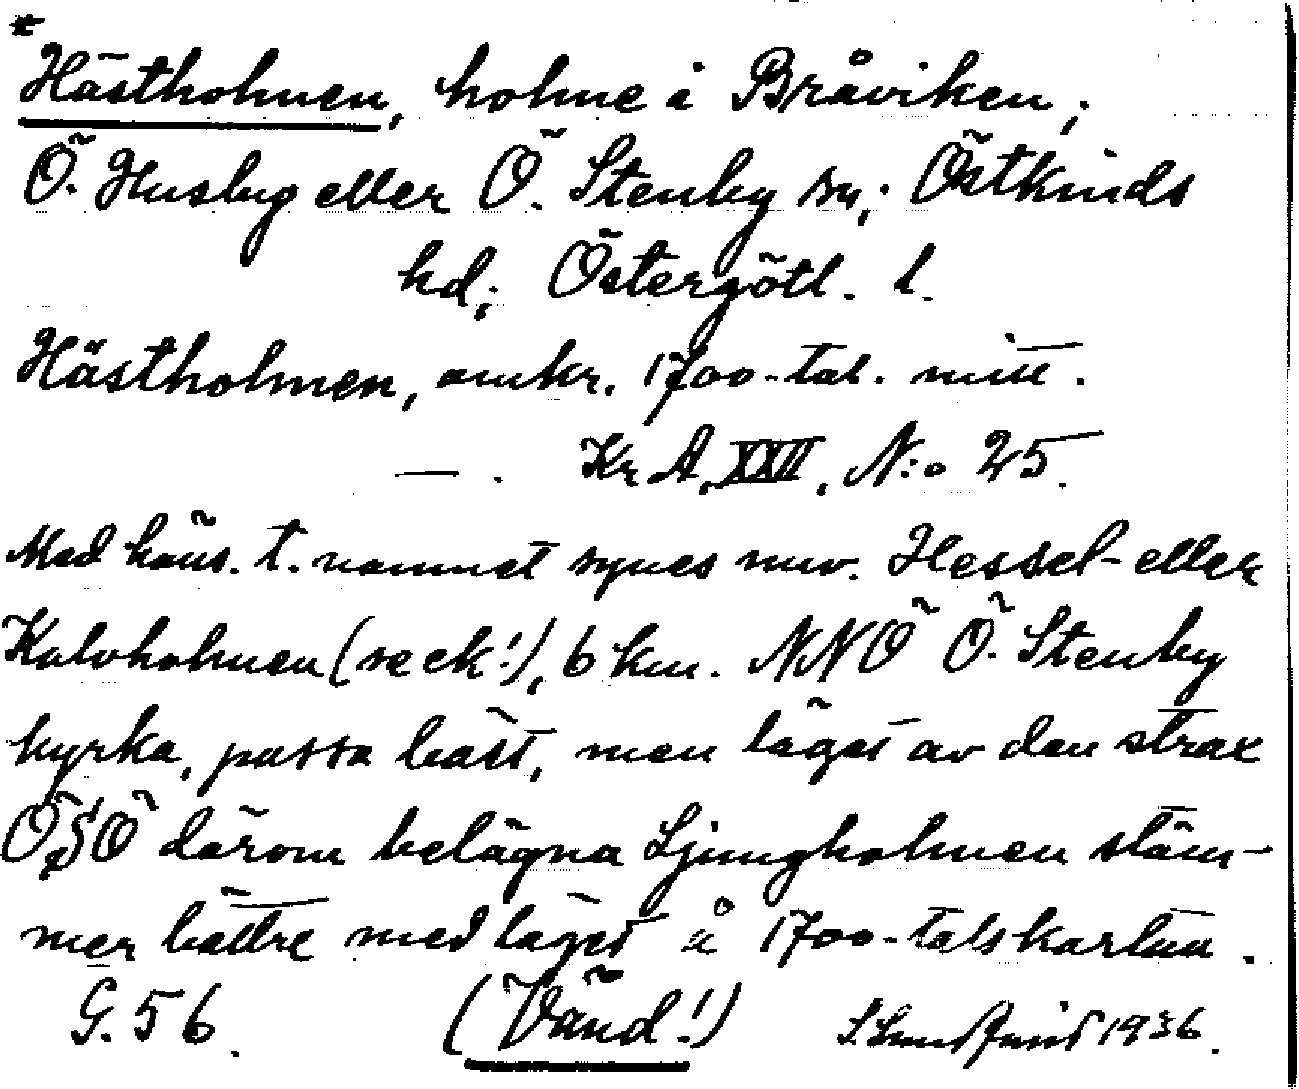 *
Hästholmen, holme i Bråviken,
Ö. Husby eller Ö. Stenby sn; Östkinds
hd; Östergötl. l.
Hästholmen, omkr. 1700-tal. mitt.
—. Kr A, XXII, N:o 25.
Med häns. t. namnet synes nuv. Hessel- eller
Kalvholmen (se ek!), 6 km. NNÖ Ö. Stenby
kyrka, passa bäst, men läget av den strax
ÖSÖ därom belägna Ljungholmen stäm-
mer bättre med läget å 1700-talskartan.
G. 56. (Vänd!) 1936.